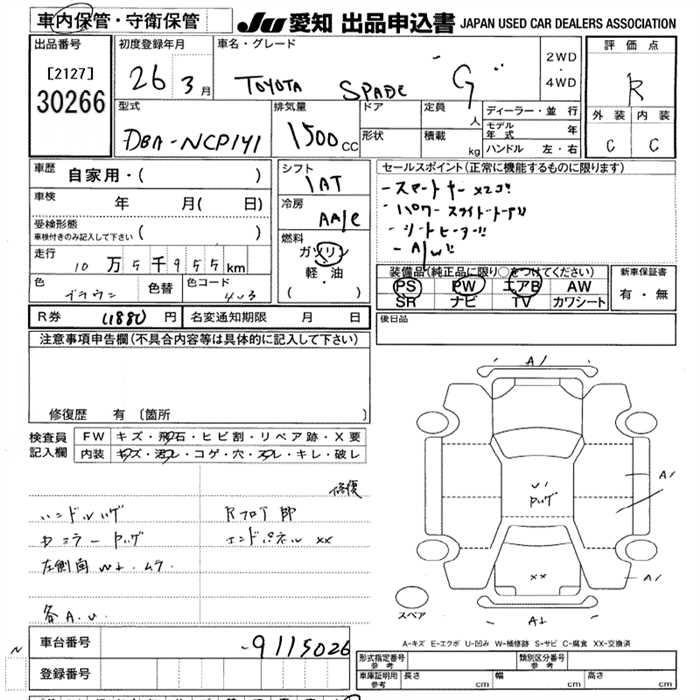 車内保管・守衛保管
JU 愛知 出品申込書 JAPAN USED CAR DEALERS ASSOCIATION
出品番号
[2127]
30266
初度登録年月
26 3月
車名・グレード
TOYOTA SPADE "G"
2WD
・
4WD
評価点
R
外装 内装
C C
型式
DBA-NCP141
排気量
1500 CC
ドア
形状
定員
人
積載
kg
ディーラー・並行
モデル年式 年
ハンドル 左・右
車歴 自家用・( )
車検 年 月( 日)
受検形態
車検付きのみ記入して下さい ( )
走行 10万5千955km
色 ブラウン 色替 色コード 4V3
シフト
IAT
冷房
AA/C
燃料
ガソリン
軽・油
( ・ )
セールスポイント(正常に機能するものに限ります)
- スマートキーx2コ!!
- パワースライドドア!!
- シートヒーター!!
- A/W!!
装備品(純正品に限り○をつけてください)
PS PW エアB AW
SR ナビ TV カワシート
新車保証書
有・無
R券 11880円 名変通知期限 月 日
後日品
注意事項申告欄(不具合内容等は具体的に記入して下さい)
修復歴 有 〔箇所
検査員
記入欄
FW キズ・飛石・ヒビ割・リペア跡・X要
内装 キズ・汚レ・コゲ・穴・スレ・キレ・破レ
修復
ハンドルハゲ Rフロア 部
エンドパネル xx
左側面 W+. ムラ.
各A.U.
A1
U1
A1
A1
xx
A+
スペア
A-キズ E-エクボ U-凹み W-補修跡 S-サビ C-腐食 XX-交換済
N
車台番号 -9115026
登録番号
形式指定番号 参考
類別区分番号 参考
車庫証明用 参考 長さ cm 幅 cm 高さ cm